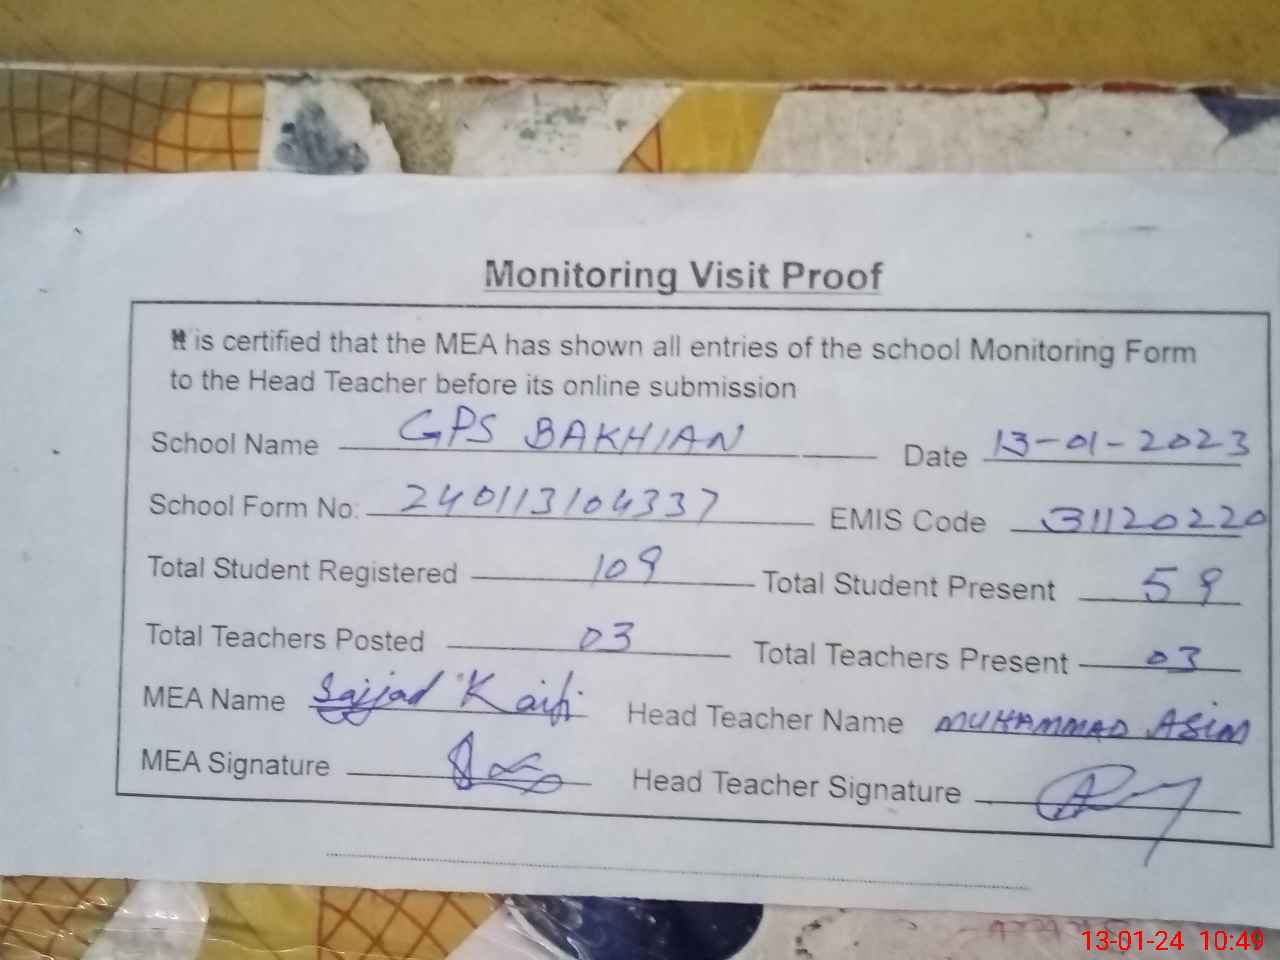 Monitoring Visit Proof
It is certified that the MEA has shown all entries of the school Monitoring Form
to the Head Teacher before its online submission
School Name GPS BAKHIAN Date 13-01-2023
School Form No: 240113104337 EMIS Code 31120220
Total Student Registered 109 Total Student Present 59
Total Teachers Posted 03 Total Teachers Present 03
MEA Name Sajjad Kaifi Head Teacher Name MUHAMMAD ASIM
MEA Signature Head Teacher Signature
13-01-24 10:49